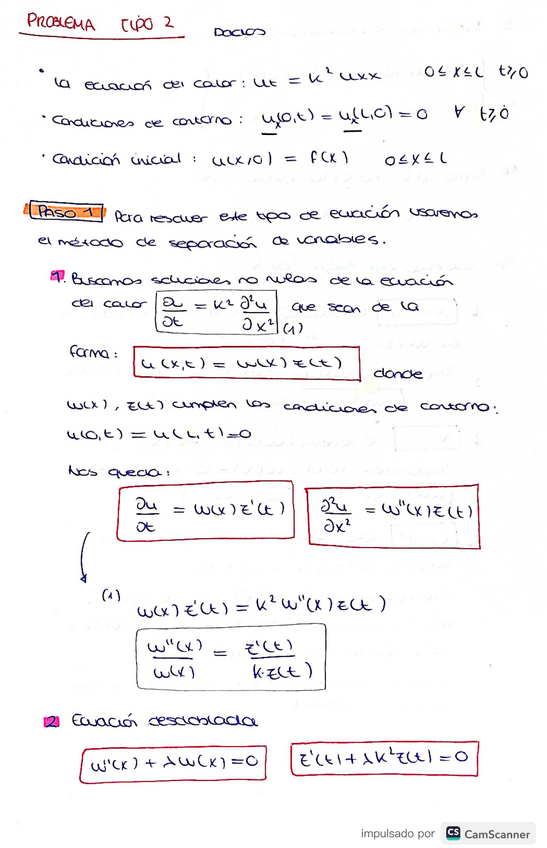 PROBLEMA TIPO 2 DATOS
• La ecuación del calor: ut = k² uxx 0≤x≤L t≥0
• Condiciones de contorno: ux(0,t) = ux(L,0) = 0 ∀ t≥0
• Condición inicial: u(x,0) = f(x) 0≤x≤L
PASO 1 Para resolver este tipo de ecuación usaremos
el método de separación de variables.
1. Buscamos soluciones no nulas de la ecuación
del calor ∂u/∂t = k² ∂²u/∂x² (1) que sean de la
forma: u(x,t) = w(x) z(t) donde
w(x), z(t) cumplen las condiciones de contorno:
u(0,t) = u(L,t)=0
Nos queda:
∂u/∂t = w(x) z'(t) ∂²u/∂x² = w''(x) z(t)
(1)
w(x) z'(t) = k² w''(x) z(t)
w''(x)/w(x) = z'(t)/k·z(t)
2 Ecuación desdoblada
w''(x) + λw(x) = 0 z'(t) + λk²z(t) = 0
impulsado por CS CamScanner